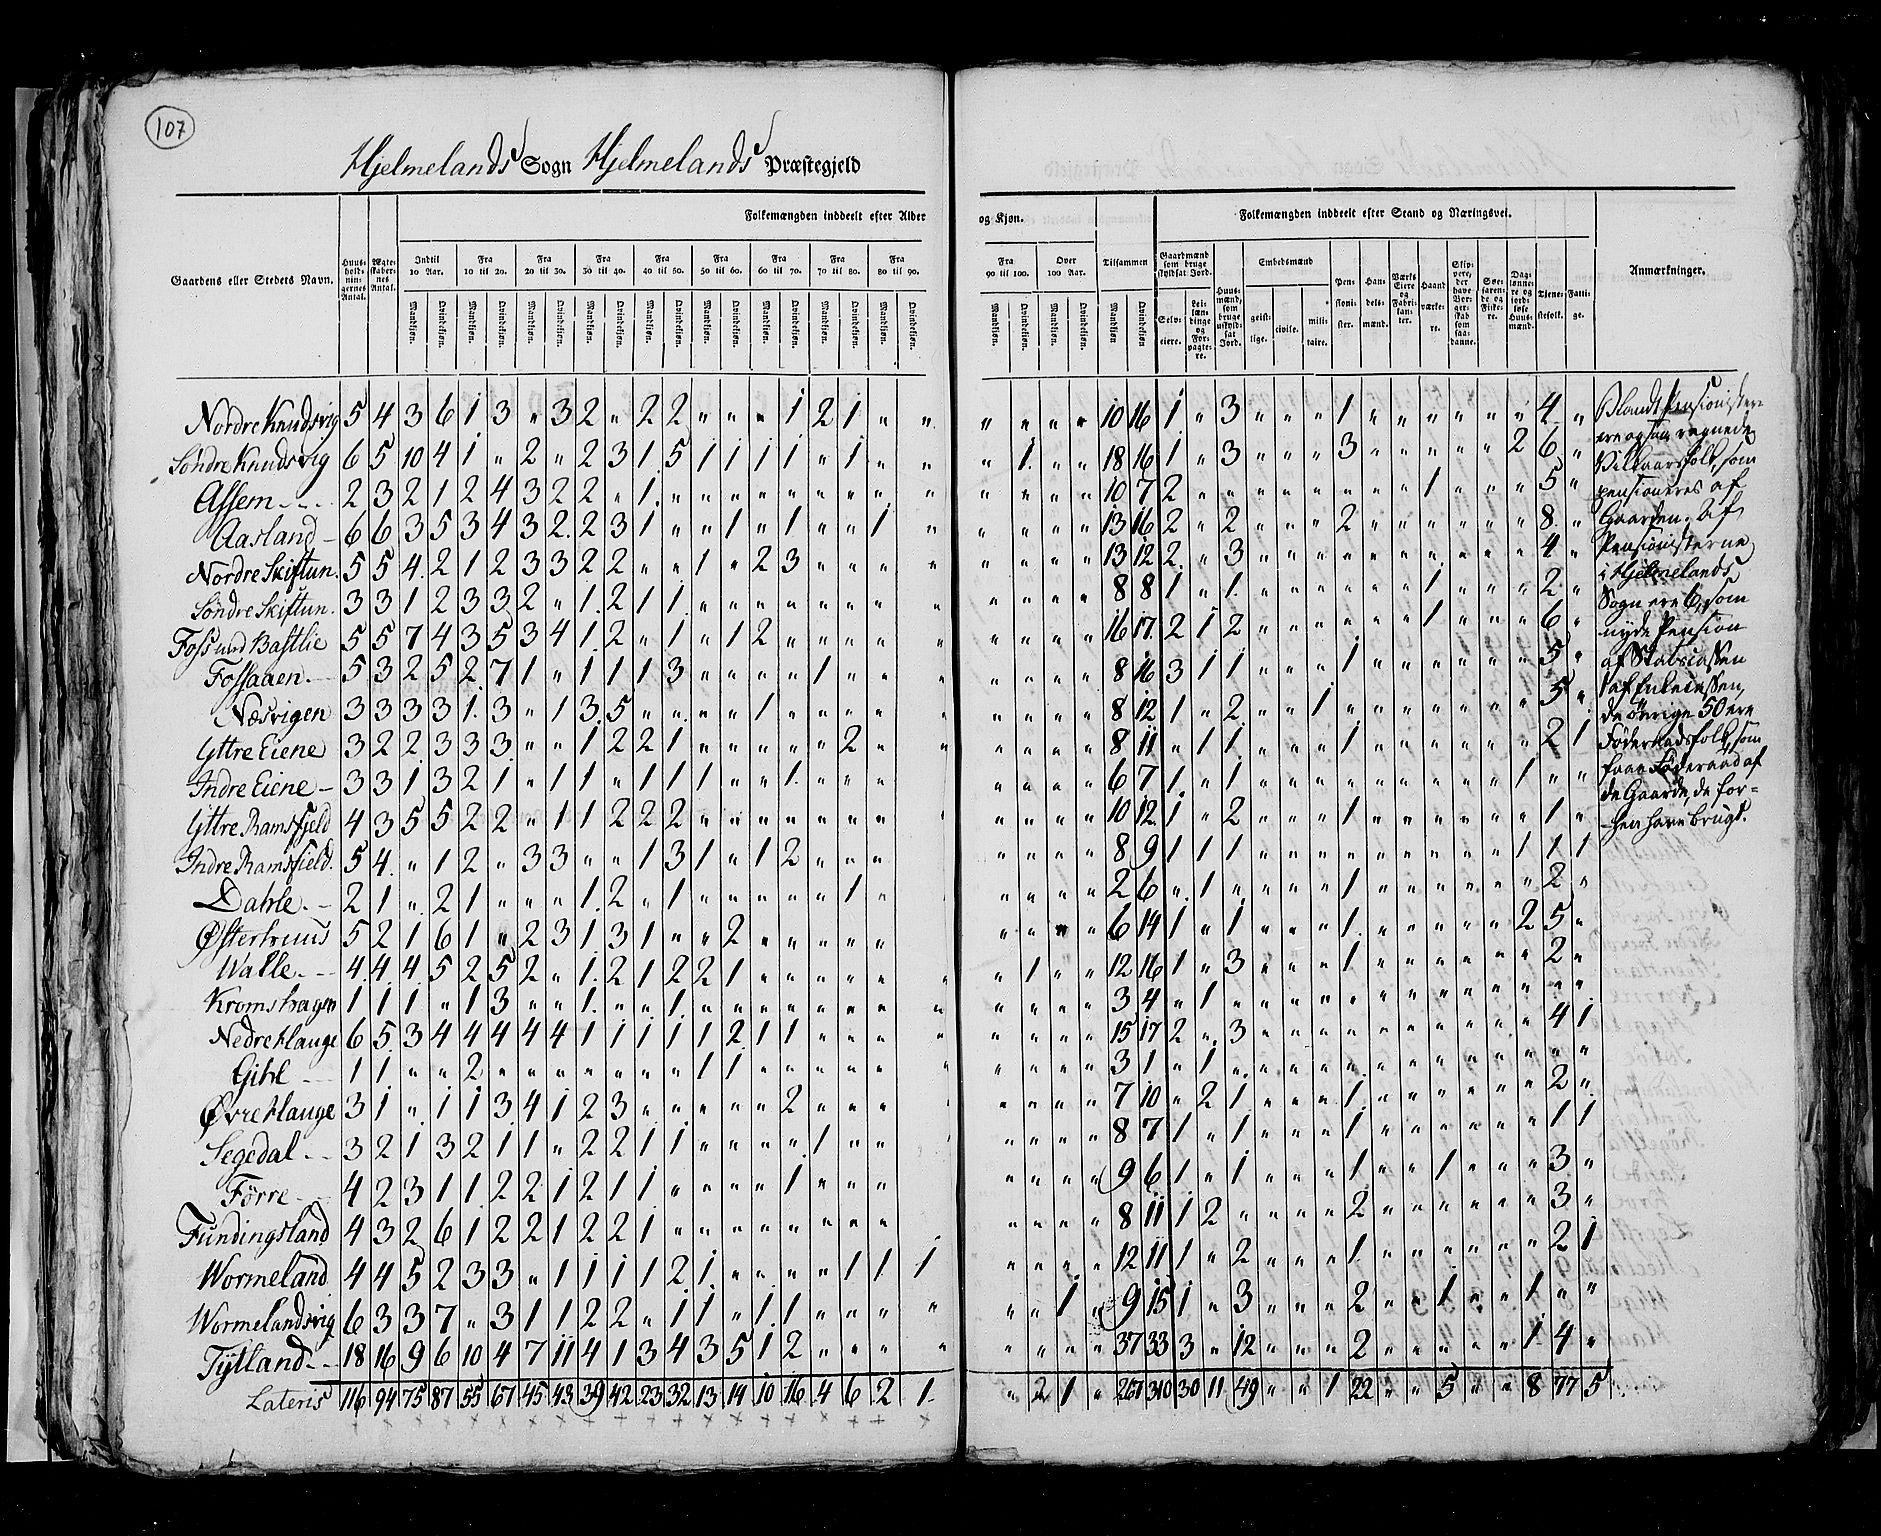 107
Hjelmelands Sogn Hjelmelands Præstegjeld
Folkemængden inddeelt efter Alder og Kjøn.
Folkemængden inddeelt efter Stand og Næringsvei.
Gaardens eller Stedets Navn.
Huus-holdnin-gernes Antal.
Ægte-skaber-nes Antal.
Indtil 10 Aar.
Fra 10 til 20.
Fra 20 til 30.
Fra 30 til 40.
Fra 40 til 50.
Fra 50 til 60.
Fra 60 til 70.
Fra 70 til 80.
Fra 80 til 90.
Fra 90 til 100.
Over 100 Aar.
Tilsammen
Mandkjøn. Qvindekjøn.
Gaardmænd som bruge skyldsat Jord.
Selv-eiere.
Lei-læn-dinge og For-pagte-re.
Huus-mænd, som bruge uskyld-sat Jord.
Embedsmænd
geist-lige. civile. mili-taire.
Pen-sioni-ster.
Han-dels-mænd.
Værks Eiere og Fabri-kan-ter.
Haand værke-re.
Søe-faren-de og Fiske-re.
Dag-lønne-re og jord-løse Huus-mænd.
Tjene-stefolk.
Fatti-ge.
Anmærkninger.
Nordre Knudsvig 5 4 3 6 1 3 " 3 2 " 2 2 " " " 1 2 1 " " " " " " 10 16 1 " 3 " " " 1 " " " " " " 4 "
Søndre Knudsvig 6 5 10 4 1 " 2 " 2 3 1 5 1 1 1 1 " 1 " " " 1 " " 18 16 1 " 3 " " " 3 " " " " " 2 6 "
Assem 2 3 2 1 2 4 3 2 2 " 1 " " " " " " " " " " " " " 10 7 2 " " " " " " " " 1 " " " 5 "
Aasland 6 6 3 5 3 4 3 2 2 3 1 " " 1 " 1 " " 1 " " " " " 13 16 2 " 2 " " " 2 " " " " " " 8 "
Nordre Skiftun 5 5 4 2 1 2 3 3 2 2 " " 1 " 2 3 " " " " " " " " 13 12 2 " 3 " " " " " " " " " " 4 "
Søndre Skiftun 3 3 1 2 3 3 2 " 1 2 1 1 " " " " " " " " " " " " 8 8 1 " 1 " " " " " " 1 " " " 2 "
Foss und Bastlie 5 5 7 4 3 5 3 4 1 2 " 1 " 1 2 " " " " " " " " " 16 17 2 1 2 " " " " " " 1 " " " 6 "
Fossaaen 5 3 2 5 2 7 1 " 1 1 1 3 " " " " 1 " " " " " " " 8 16 3 1 1 " " " 1 " " " " " " 5 "
Næsvigen 3 3 3 3 1 3 " 1 3 5 " " " " 1 " " " " " " " " " 8 12 1 " 2 " " 1 " " " " " " " 5 "
Yttre Eiene 3 2 2 3 3 3 " " 1 2 2 1 " " " " " 2 " " " " " " 8 11 " 1 1 " " " 1 " " " " " " 2 1
Indre Eiene 3 3 1 3 2 1 " 1 1 " 1 1 1 " " 1 " " " " " " " " 6 7 1 " 1 " " " " " " " " " 1 " "
Yttre Ramsfjeld 4 3 5 5 2 2 " 1 1 2 2 2 " " " " " " " " " " " " 10 12 1 " 2 " " " 1 " " " " " " 1 "
Indre Ramsfield 5 4 " 1 2 " 3 3 " " 1 3 1 " 1 2 " " " " " " " " 8 9 1 1 1 " " " " " " " " " 1 1 1
Dahle 2 1 " 2 1 " " " 1 2 " 1 " " " " " 1 " " " " " " 2 6 " 1 " " " " 1 " " " " " " 2 "
Østerhuus 5 2 1 6 1 " 2 3 1 3 1 " " 2 " " " " " " " " " " 6 14 1 " 1 " " " 1 " " " " " 2 5 "
Walle 4 4 4 5 2 5 2 " 1 2 1 2 2 1 " " " " " " " 1 " " 12 16 1 " 3 " " " 1 " " " " " " 2 "
Kromshagen 1 1 1 " 1 3 " " 1 " " 1 " " " " " " " " " " " " 3 4 " 1 " " " " " " " " " " " " "
Nedre Hauge 6 5 3 4 4 4 4 4 1 1 1 1 1 2 1 1 " " " " " " " " 15 17 2 " 3 " " " " " " " " " " 4 1
Gihl 1 1 " " 2 " " " " " " " 1 1 " " " " " " " " " " 3 1 " 1 " " " " " " " " " " " " "
Øvre Hauge 3 1 " 1 1 3 4 1 2 3 " " " " " 2 " " " " " " " " 7 10 " 2 1 " " " 1 " " " " " " 2 "
Segedal 3 2 1 3 2 1 1 " 2 2 1 1 " " " " 1 " " " " " " " 8 7 1 " 1 " " " 1 " " " " " " 1 1
Førre 4 2 3 1 1 2 2 1 2 1 1 " " " " 1 " " " " " " " " 9 6 1 " 1 " " " 1 " " 1 " " " 3 "
Fundingsland 4 3 2 6 1 2 2 1 2 2 1 " " " " " " " " " " " " " 8 11 1 2 " " " " 2 " " " " " " 3 "
Wormeland 4 4 5 2 3 3 " 1 1 1 1 2 1 " " " " 1 1 1 " " " " 12 11 1 " 2 " " " 1 " " " " " " 2 1
Wormelandsvig 6 3 3 7 " 3 1 1 2 2 " 1 1 " 1 1 " " " " " " 1 " 9 15 1 " 3 " " " 2 " " 1 " " 1 " "
Tytland 18 16 9 6 10 4 7 11 4 1 3 4 3 5 1 2 " " " " " " " " 37 33 3 " 12 " " " 2 " " " " " 1 4 "
Lateris 116 94 75 87 55 67 45 43 39 42 23 32 13 14 10 16 4 6 2 1 " 2 1 " 267 310 30 11 49 " " 1 22 " " 5 " " 8 77 5
Blandt Pensionister
ere ogsaa regnede
Vilkaarsfolk, som
pensioneres af
Gaarden. Af
Pensionisterne
i Hjelmelands
Sogn ere 6, som
nyde Pension
af Enkecassen,
de øvrige 50 ere
Føderaadsfolk, som
faae Føderaad af
de Gaarde, de for=
=hen have brugt.